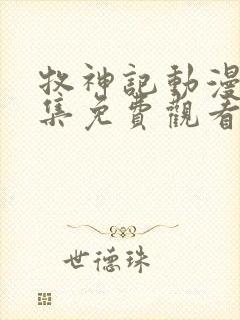 牧神記動漫
集免費觀看
世德珠